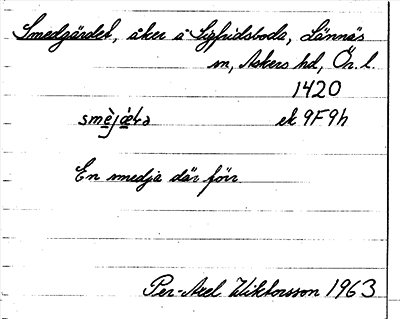 Smedgärdet, åker å Sigfridsboda, Lännäs
sn, Askers hd, Ör. l.
1420
smèjǽta ek 9F9h
En smedja där förr.
Per-Axel Wiktorsson 1963